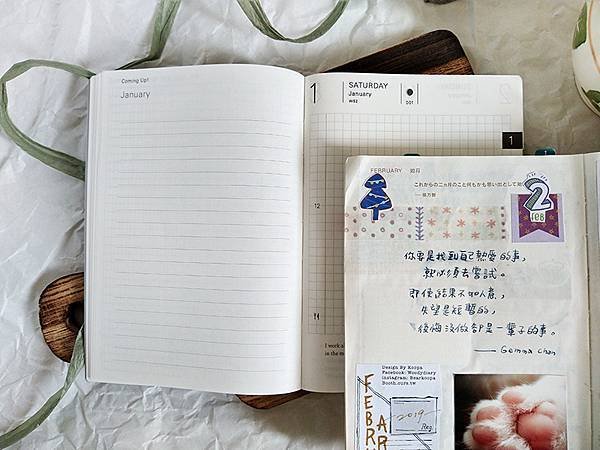 Coming Up!
January
1
SATURDAY
January
W52
001
1
12
I work a
in the m
FEBRUARY 如月
これからの二ヵ月のこと何もかも思い出として
俵万智
2
FEB
你要是找到自己熱愛的事，
就必須去嘗試。
即使結果不如人意，
失望是短暫的，
後悔沒做卻是一輩子的事。
——Gemma Chan
Design By Koopa
Facebook: Woodydiary
instagram: Bearkoopa
Booth.oura.tw
FEBRU
AR
2019
Reg.